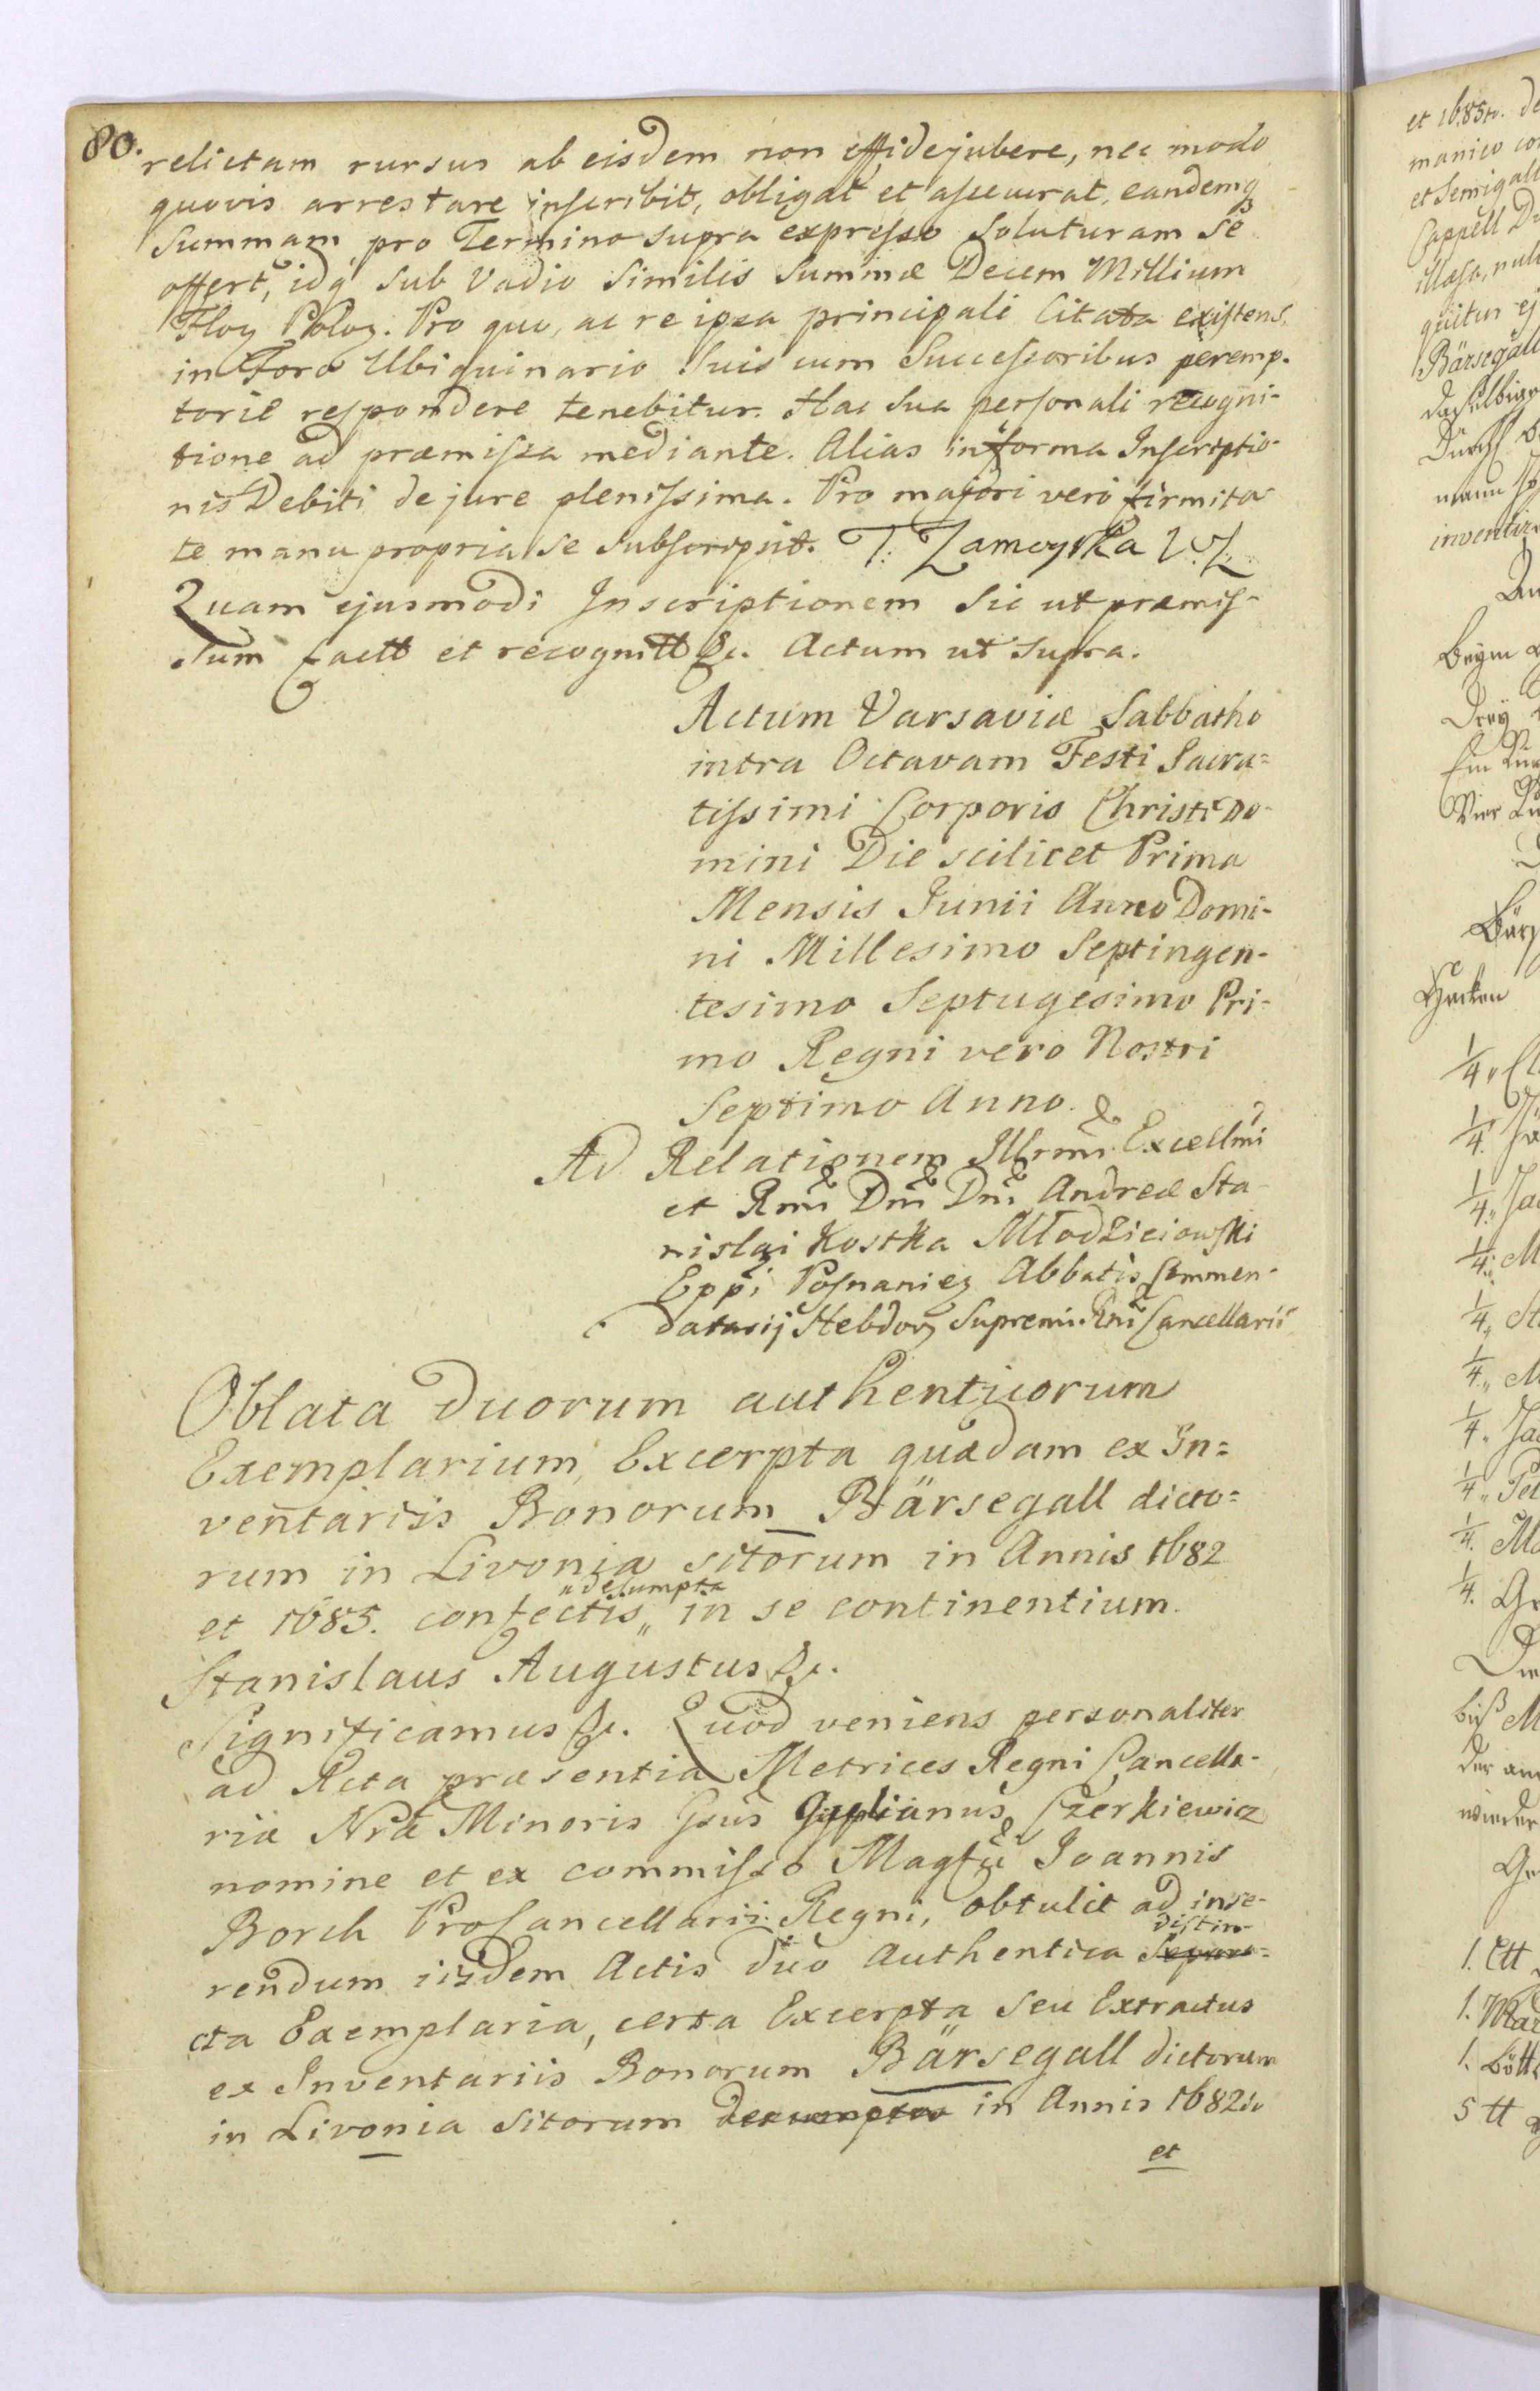 80.
relictam rursus ab eisdem non effidejubere, nec modo
quovis arrestare inscribit, obligat et assecurat, eandemq
Summam pro Termino supra expresso Soluturam Se
offert, idq sub Vadio Similis Summæ Decem Millium
Flor Polor. Pro quo, ac re ipsa principali Citata existens,
in Foro Ubiquinario Suis cum Successoribus peremp-
torie respondere tenebitur. Hac Sua personali recogni-
tione ad præmissa mediante. Alias in forma Inscriptio-
nis Debiti de jure plenissima. Pro majori vero firmita
te manu propria se subscripsit. T. Zamoyska
Quam ejusmodi Inscriptionem Sic ut præmis-
sum factt et recognitt &c. Actum ut supra.
Actum Varsaviæ Sabbatho
intra Octavam Festi Sacra=
tissimi Corporis Christi Do-
mini Die scilicet Prima
Mensis Junii Anno Domi-
ni Millesimo Septingen-
tesimo Septugesimo Pri-
mo Regni vero Nostri
Septimo Anno.
Ad Relationem Illrmi Excellmi
et Rmi Dni Dni Andreæ Sta
nislai Kostka Młodzieiowski
Eppi Posnanien Abbatis Commen-
datarij Hebdov Supremi Rni Cancellarii
Oblata duorum authenticorum
Exemplarium, Excerpta quædam ex In=
ventariis Bonorum Bärsegall dicto=
rum in Livonia sitorum in Annis 1682
"desumpta
et 1685. confectis,, in se continentium.
Stanislaus Augustus &c.
Significamus &c. Quod veniens personaliter
ad Acta præsentia Metrices Regni Cancella-
riæ Nræ Minoris Gsus Cyprianus Czerkiewicz
nomine et ex commisso Magfci Joannis
Borch ProCancellarii Regni, obtulit ad inse-
distin-
rendum iisdem Actis duo Authentica Separa=
cta Exemplaria, certa Excerpta seu Extractus
ex Inventariis Bonorum Bärsegall dictorum
in Livonia Sitorum desumptos in Annis 1682do
et
et 1685to. de
manico
et Semigall
Cappell
illæsa, nul
quitur ej
Bärsegall
inventir
1/4
1/4
1/4
1/4
1/4
1/4
1/4
1/4
1/4
1/4